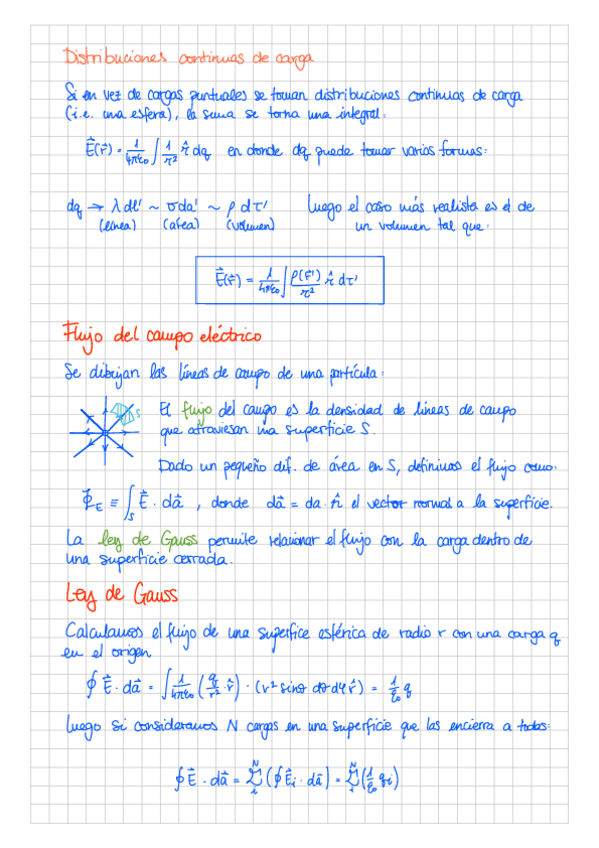 Distribuciones continuas de carga
Si en vez de cargas puntuales se toman distribuciones continuas de carga
(i.e. una esfera), la suma se torna una integral:
E⃗(r⃗) = 1/4πε₀ ∫ 1/r² r̂ dq en donde dq puede tomar varias formas:
dq → λ dl' ~ σ da' ~ ρ dτ' Luego el caso más realista es el de
(línea) (área) (volumen) un volumen tal que:
E⃗(r⃗) = 1/4πε₀ ∫ ρ(r⃗')/r² r̂ dτ'
Flujo del campo eléctrico
Se dibujan las líneas de campo de una partícula:
S El flujo del campo es la densidad de líneas de campo
que atraviesan una superficie S.
Dado un pequeño dif. de área en S, definimos el flujo como:
Φ_E ≡ ∫_S E⃗ · da⃗ , donde da⃗ = da · n̂ el vector normal a la superficie.
La ley de Gauss permite relacionar el flujo con la carga dentro de
una superficie cerrada.
Ley de Gauss
Calculamos el flujo de una superfice esférica de radio r con una carga q
en el origen
∮ E⃗ · da⃗ = ∫ 1/4πε₀ (q/r² · r̂) · (r² sinθ dθ dφ r̂) = 1/ε₀ q
Luego si consideramos N cargas en una superficie que las encierra a todas:
∮ E⃗ · da⃗ = Σ_i^N (∮ E⃗_i · da⃗) = Σ_i^N (1/ε₀ q_i)